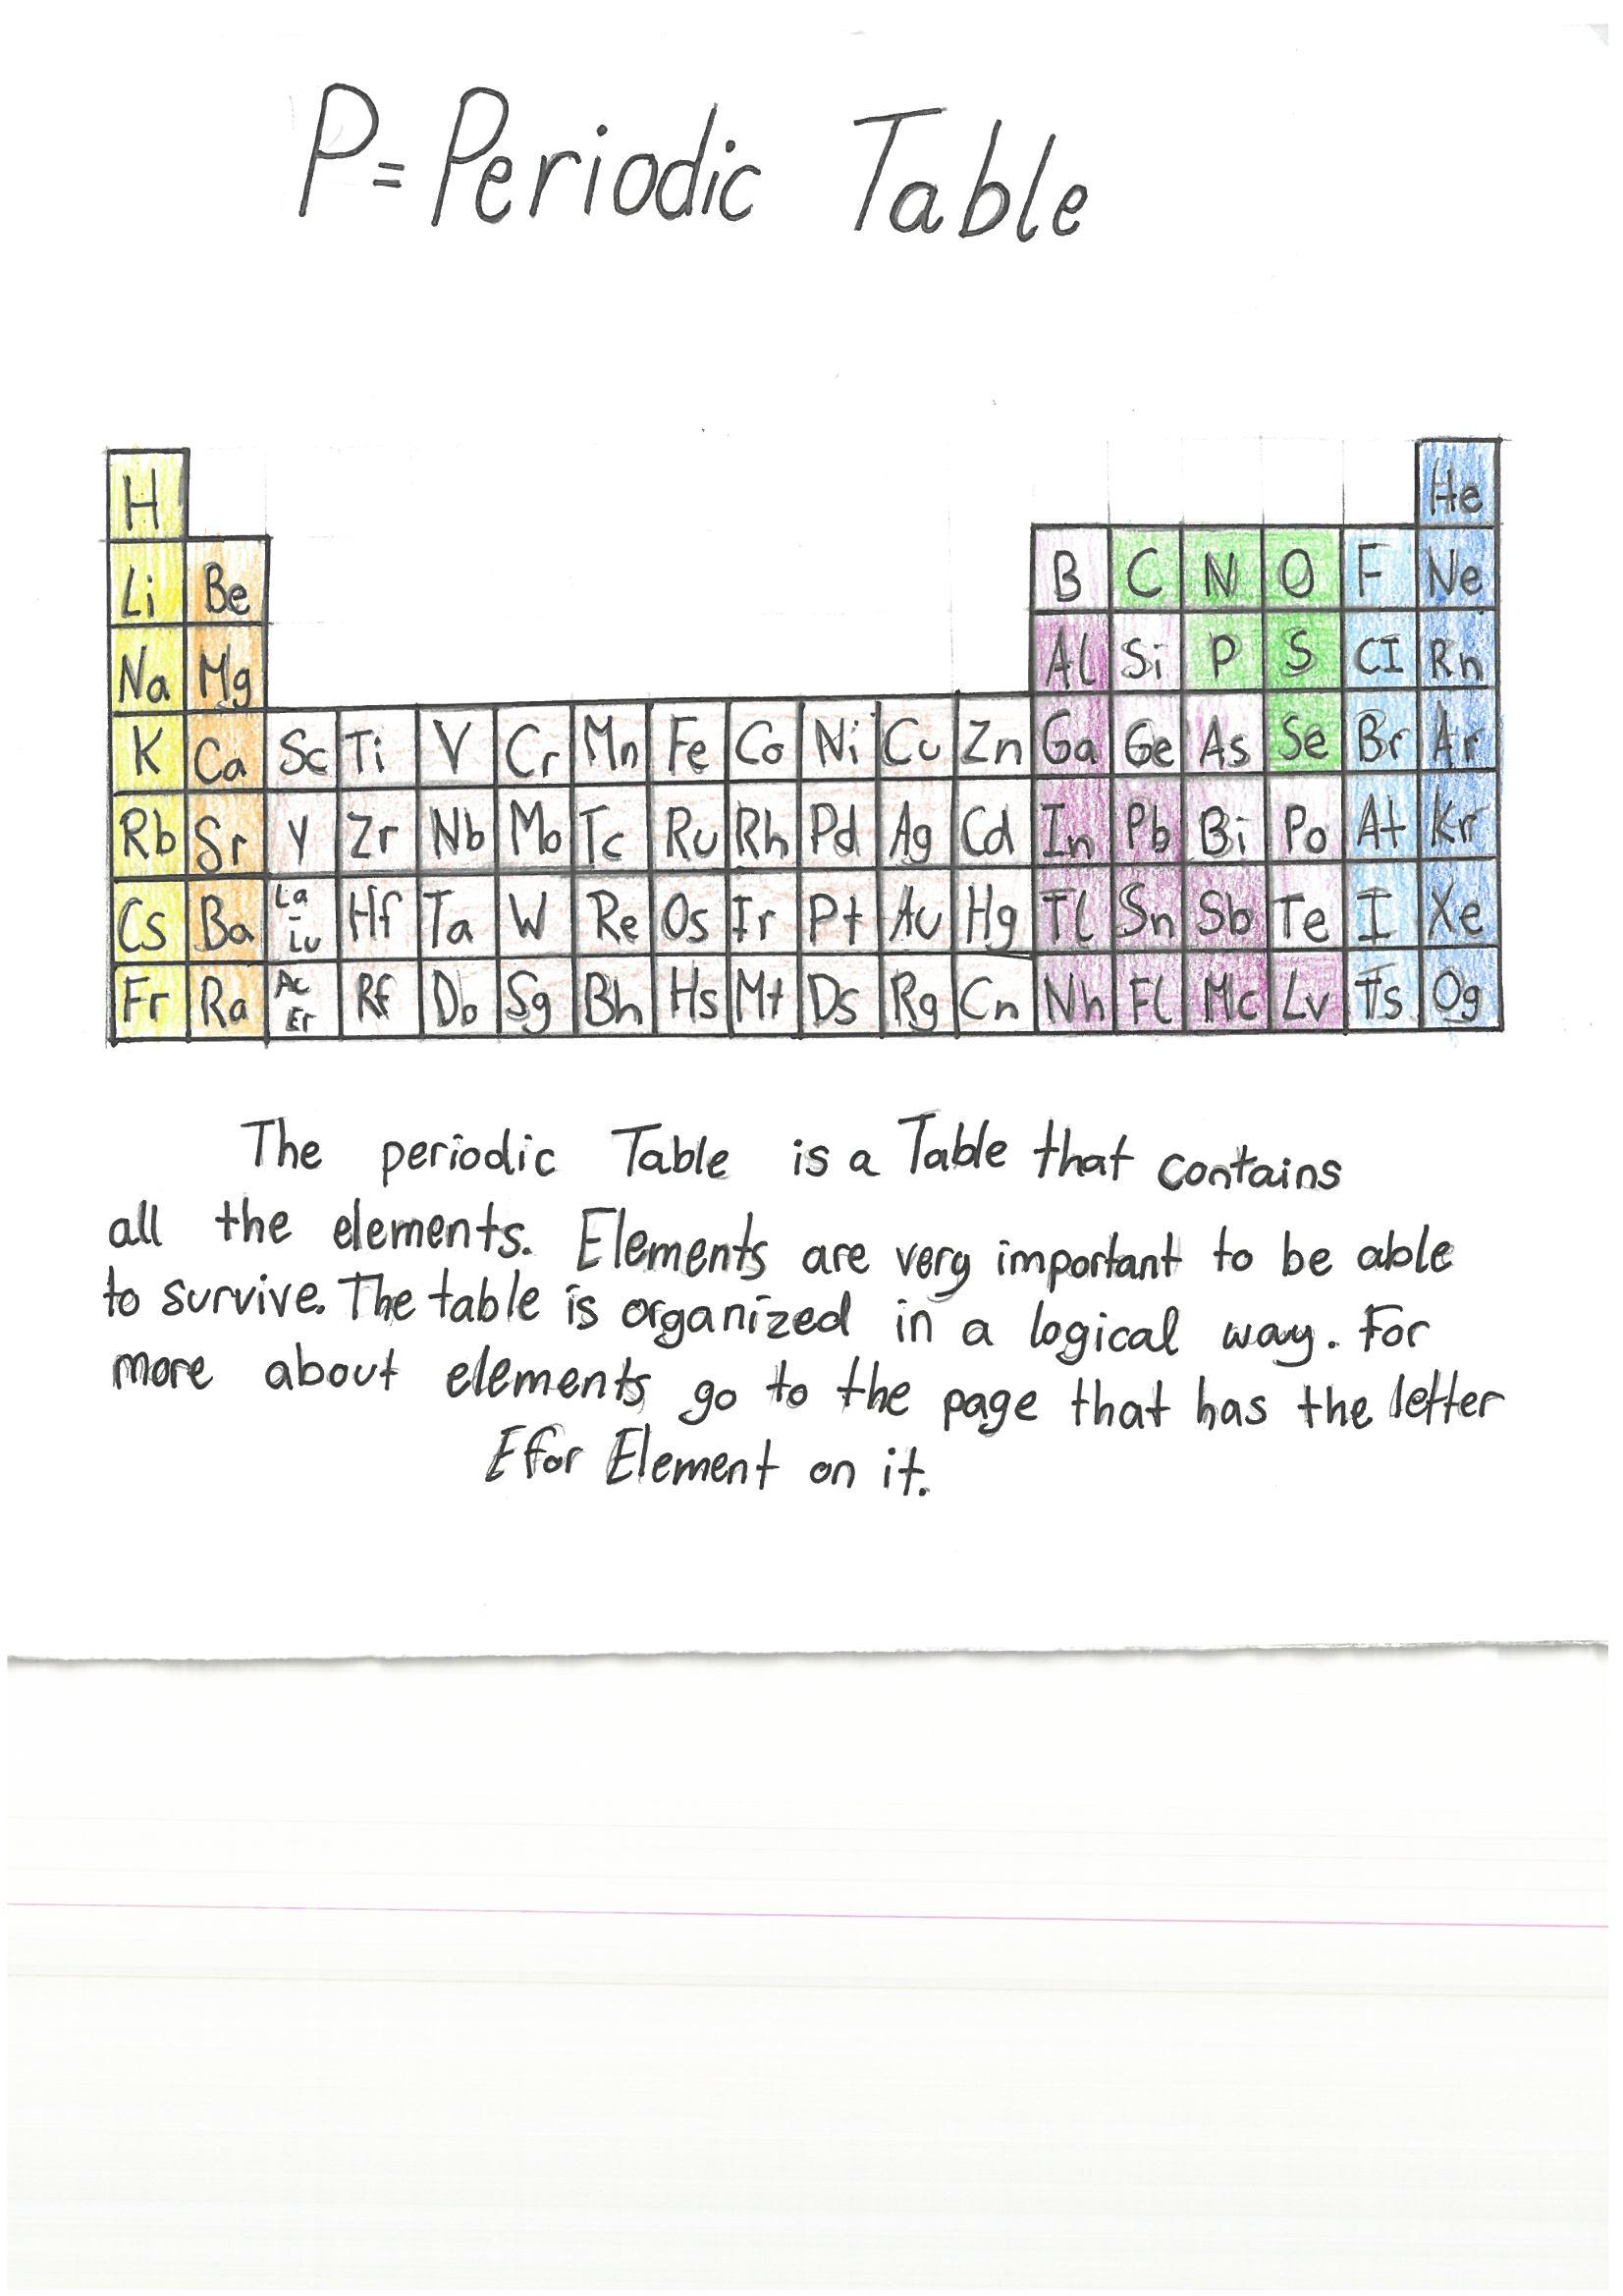 P=Periodic Table
H He
Li Be B C N O F Ne
Na Mg Al Si P S CI Rn
K Ca Sc Ti V Cr Mn Fe Co Ni Cu Zn Ga Ge As Se Br Ar
Rb Sr Y Zr Nb Mo Tc Ru Rh Pd Ag Cd In Pb Bi Po At Kr
Cs Ba La-Lu Hf Ta W Re Os Ir Pt Au Hg Tl Sn Sb Te I Xe
Fr Ra Ac Er Rf Db Sg Bh Hs Mt Ds Rg Cn Nh Fl Mc Lv Ts Og
The periodic Table is a Table that contains
all the elements. Elements are very important to be able
to survive. The table is organized in a logical way. For
more about elements go to the page that has the letter
E for Element on it.